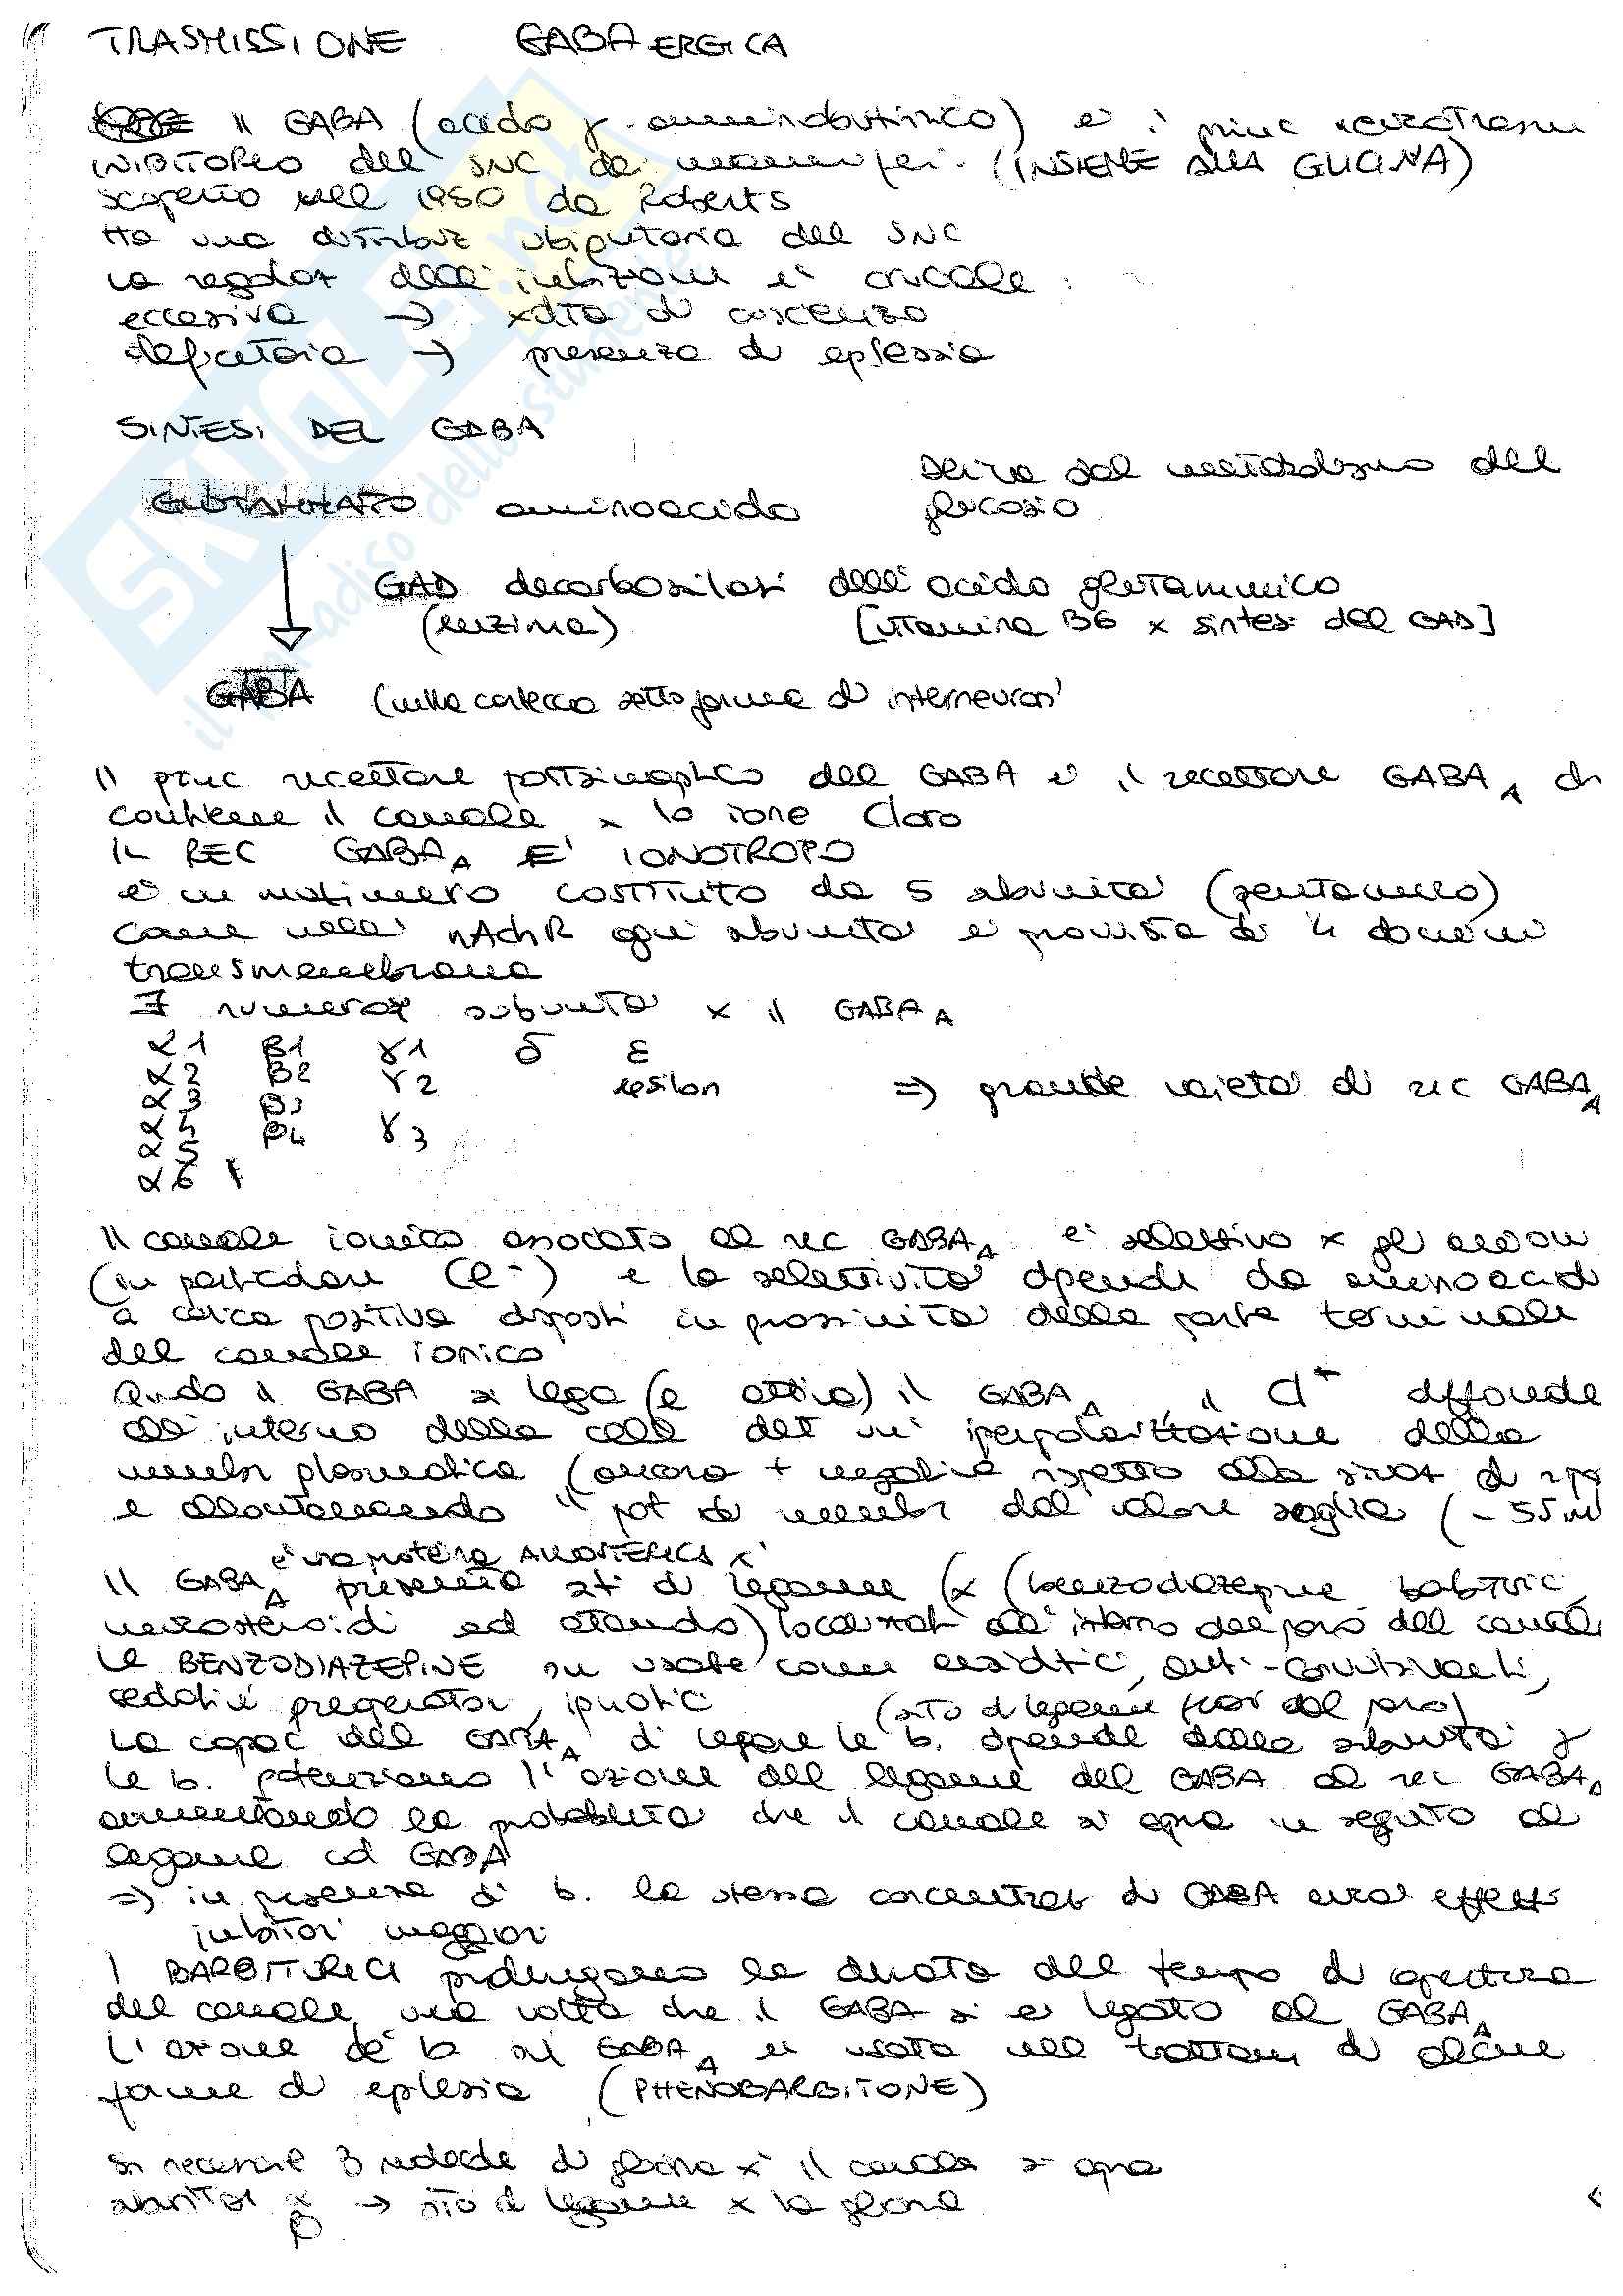 TRASMISSIONE GABAERGICA
Il GABA (acido γ-amminobutirrico) e' il princ neurotrasm
INIBITORIO del SNC dei mammiferi. (INSIEME ALLA GLICINA)
scoperto nel 1950 da Roberts
Ha una distribuz ubiquitaria del SNC
La regolaz dell'inibizione e' cruciale:
eccessiva → xdita di coscienza
deficitaria → presenza di eplessia
SINTESI DEL GABA
GLUTAMMATO aminoacido deriva dal metabolismo del
glucosio
GAD decarbossilasi dell'acido glutammico
(enzima) [vitamina B6 x sintesi del GAD]
GABA (nella corteccia sotto forma di interneuroni
Il princ recettore postsinaptico del GABA e' il recettore GABA A ch
contiene il canale x lo ione Cloro
IL REC GABA A E' IONOTROPO
e' un multimero costituito da 5 subunita' (pentamero)
Come nella' nAchR ogni subunita' e' provvista di 4 domini
transmembrana
∃ numerose subunita' x il GABA A
α1 β1 γ1 δ ε
α2 β2 γ2 epsilon => grande varieta' di rec GABA A
α3 β3
α4 β4 γ3
α5
α6
Il canale ionico associato al rec GABA A e' selettivo x gli anioni
(in particolare Cl-) e la selettivita' dipende da aminoacidi
a carica positiva disposti in prossimita' della parte terminale
del canale ionico
Qndo il GABA si lega (e attiva) il GABA A, il Cl- diffonde
all'interno della cell det un' iperpolarizzazione della
membr plasmatica (ancora + negativa rispetto alla situaz di rip
e allontanando il pot di membr dal valore soglia (-55 m
e' una proteina ALLOSTERICA x'
Il GABA A presenta siti di legame (x (benzodiazepine, barbituric
neurosteroidi ed etanolo) localizzati all'interno del poro del canale
Le BENZODIAZEPINE sn usate come ansiolitici, anti-convulsivanti,
sedativi preoperatori, ipnotici (sito di legame fuori dal poro)
La capac del GABA A di legare le b. dipende dalla subunita' γ
le b. potenziano l'azione del legame del GABA al rec GABA A
aumentando la probabilita' che il canale si apra in seguito al
legame col GABA
=> in presenza di b. la stessa concentraz di GABA avra' effetti
inibitori maggiori
I BARBITURICI prolungano la durata del tempo di apertura
del canale, una volta che il GABA si e' legato al GABA A
L'azione de' b su GABA A e' usata nel trattam di alcune
forme di eplessia (PHENOBARBITONE)
Sn necessarie 3 molecole di glicina x' il canale si apra
subunita' α → sito di legame x la glicina
β